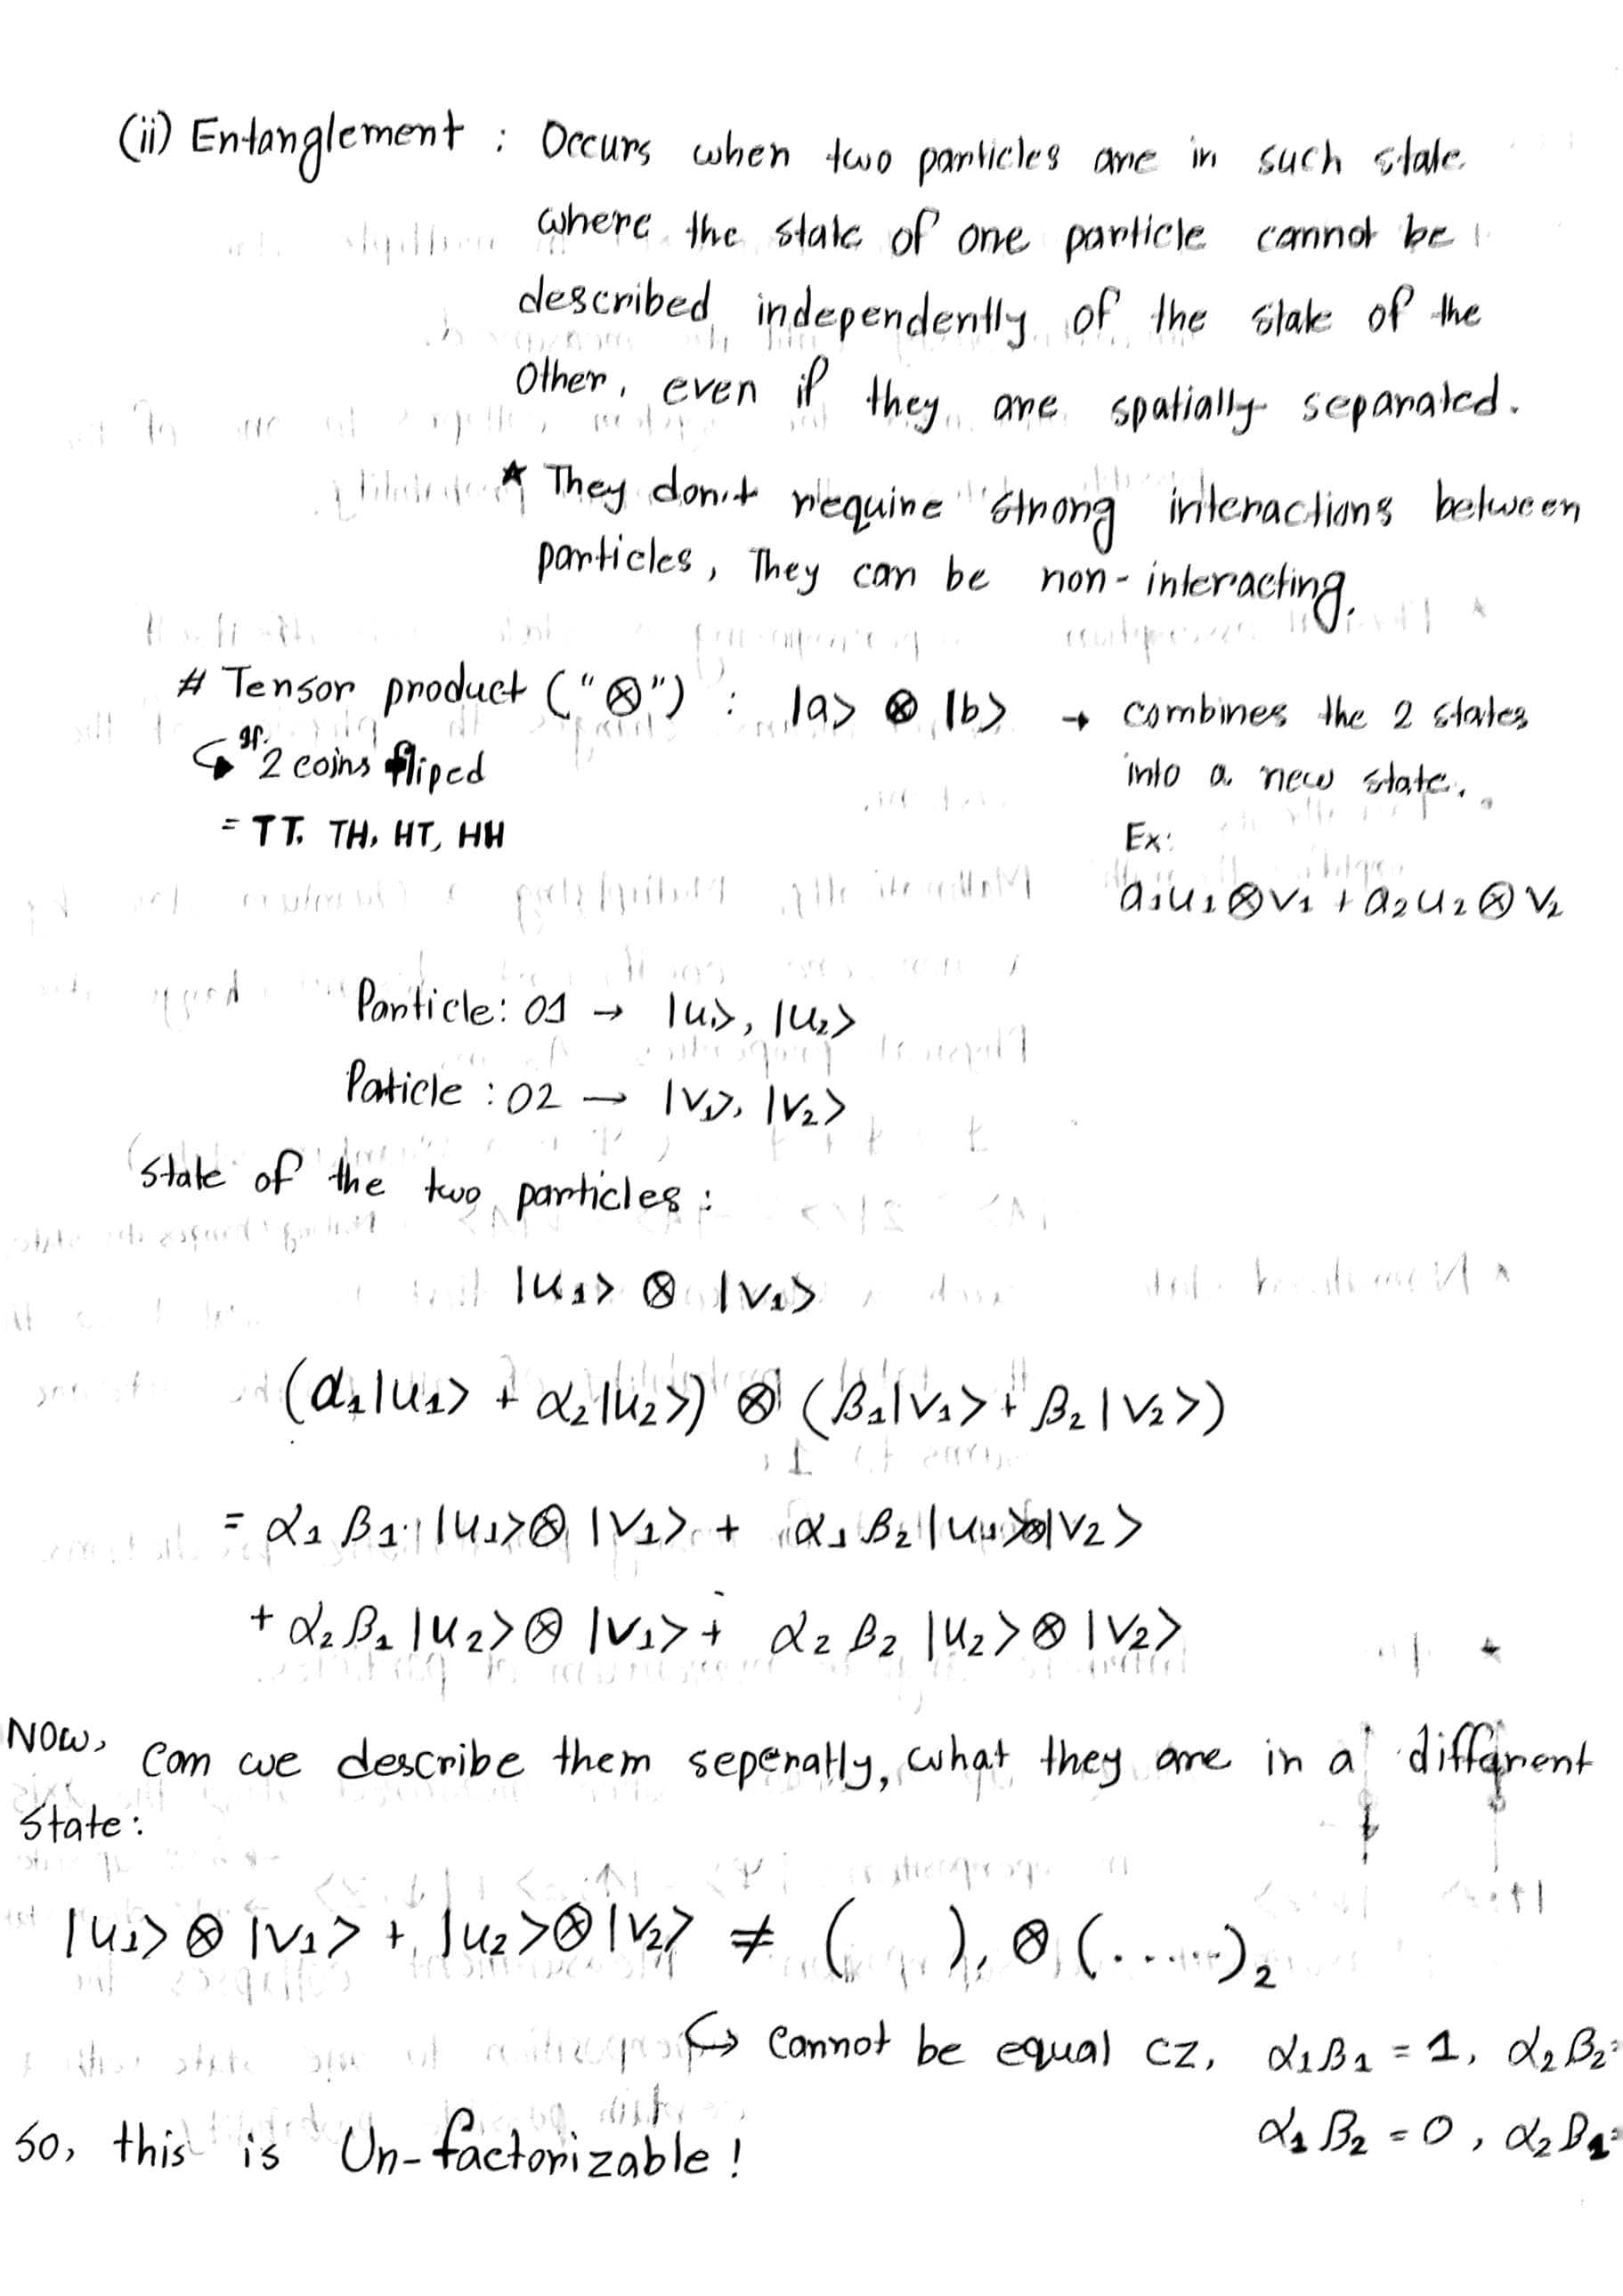 (ii) Entanglement : Occurs when two particles are in such state
where the state of one particle cannot be
described independently of the state of the
other, even if they are spatially separated.
* They don't require strong interactions between
particles, They can be non-interacting.
# Tensor product ("⊗") : |a> ⊗ |b> → combines the 2 states
into a new state.
↪ If 2 coins fliped
= TT, TH, HT, HH
Ex:
a₁u₁⊗v₁ + a₂u₂⊗v₂
Particle: 01 → |u₁>, |u₂>
Paticle : 02 → |v₁>, |v₂>
State of the two particles :
|u₁> ⊗ |v₁>
(α₁|u₁> + α₂|u₂>) ⊗ (β₁|v₁> + β₂|v₂>)
= α₁β₁|u₁>⊗|v₁> + α₁β₂|u₁>⊗|v₂>
+ α₂β₁|u₂>⊗|v₁> + α₂β₂|u₂>⊗|v₂>
Now, can we describe them seperatly, what they are in a different
state:
|u₁>⊗|v₁> + |u₂>⊗|v₂> ≠ ( )₁ ⊗ (.....)₂
↪ cannot be equal cz, α₁β₁ = 1, α₂β₂=
α₁β₂ = 0, α₂β₁=
So, this is Un-factorizable!